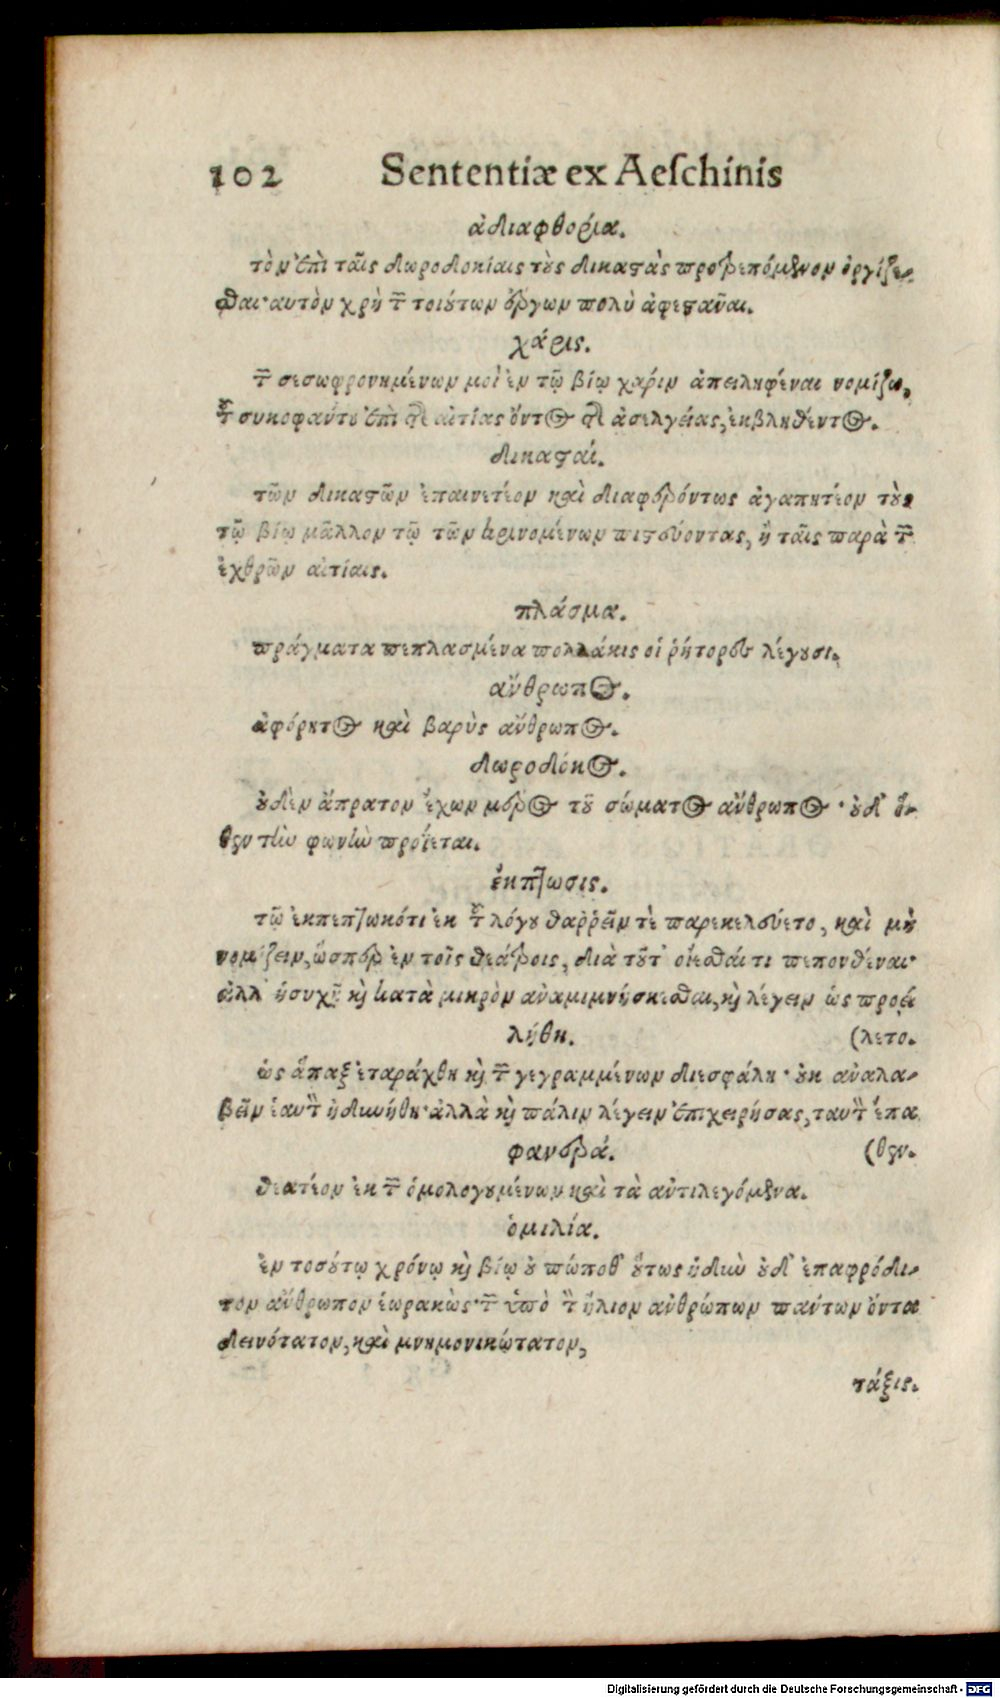 102 Sententiæ ex Aeſchinis
ἀδιαφθορία.
τὸν ἐπὶ ταῖς δωροδοκίαις τοὺς δικαστὰς προτρεπόμενον ὀργίζε-
σθαι· αὐτὸν χρὴ τῶν τοιούτων ἔργων πολὺ ἀφεστάναι.
χάρις.
τῶν σεσωφρονημένων μοὶ ἐν τῷ βίῳ χάριν ἀπειληφέναι νομίζω,
τοῦ συκοφάντου ἐπὶ τῆς αἰτίας ὄντος τῆς ἀσελγείας, ἐκβληθέντος.
δικασταί.
τῶν δικαστῶν ἐπαινετέον καὶ διαφερόντως ἀγαπητέον τοὺς
τῷ βίῳ μᾶλλον τῷ τῶν κρινομένων πιστεύοντας, ἢ ταῖς παρὰ τῶν
ἐχθρῶν αἰτίαις.
πλάσμα.
πράγματα πεπλασμένα πολλάκις οἱ ῥήτορες λέγουσι.
ἄνθρωπος.
ἀφόρητος καὶ βαρὺς ἄνθρωπος.
δωροδόκος.
οὐδὲν ἄπρατον ἔχων μέρος τοῦ σώματος ἄνθρωπος · οὐδ' ὅ-
θεν τὴν φωνὴν προΐεται.
ἔκπτωσις.
τῷ ἐκπεπτωκότι ἐκ τοῦ λόγου θαῤῥεῖν τὲ παρεκελεύετο, καὶ μὴ
νομίζειν, ὥσπερ ἐν τοῖς θεάτροις, διὰ τοῦτ' οἴεσθαί τι πεπονθέναι·
ἀλλ' ἡσυχῇ καὶ κατὰ μικρὸν ἀναμιμνήσκεσθαι, καὶ λέγειν ὡς προεί
λήθη. (λετο.
ὡς ἅπαξ ἐταράχθη καὶ τῶν γεγραμμένων διεσφάλη · οὐκ ἀναλα-
βεῖν ἑαυτὸν ἠδυνήθη· ἀλλὰ καὶ πάλιν λέγειν ἐπιχειρήσας, ταυτὸν ἔπα
φανερά. (θεν.
θεατέον ἐκ τῶν ὁμολογουμένων καὶ τὰ ἀντιλεγόμενα.
ὁμιλία.
ἐν τοσούτῳ χρόνῳ καὶ βίῳ οὐ πώποθ' οὕτως ἡδὺν οὐδ' ἐπαφρόδι-
τον ἄνθρωπον ἑωρακὼς· τῶν ὑπὸ τὸν ἥλιον ἀνθρώπων πάντων ὄντα
δεινότατον, καὶ μνημονικώτατον,
τάξις.
Digitalisierung gefördert durch die Deutsche Forschungsgemeinschaft - DFG